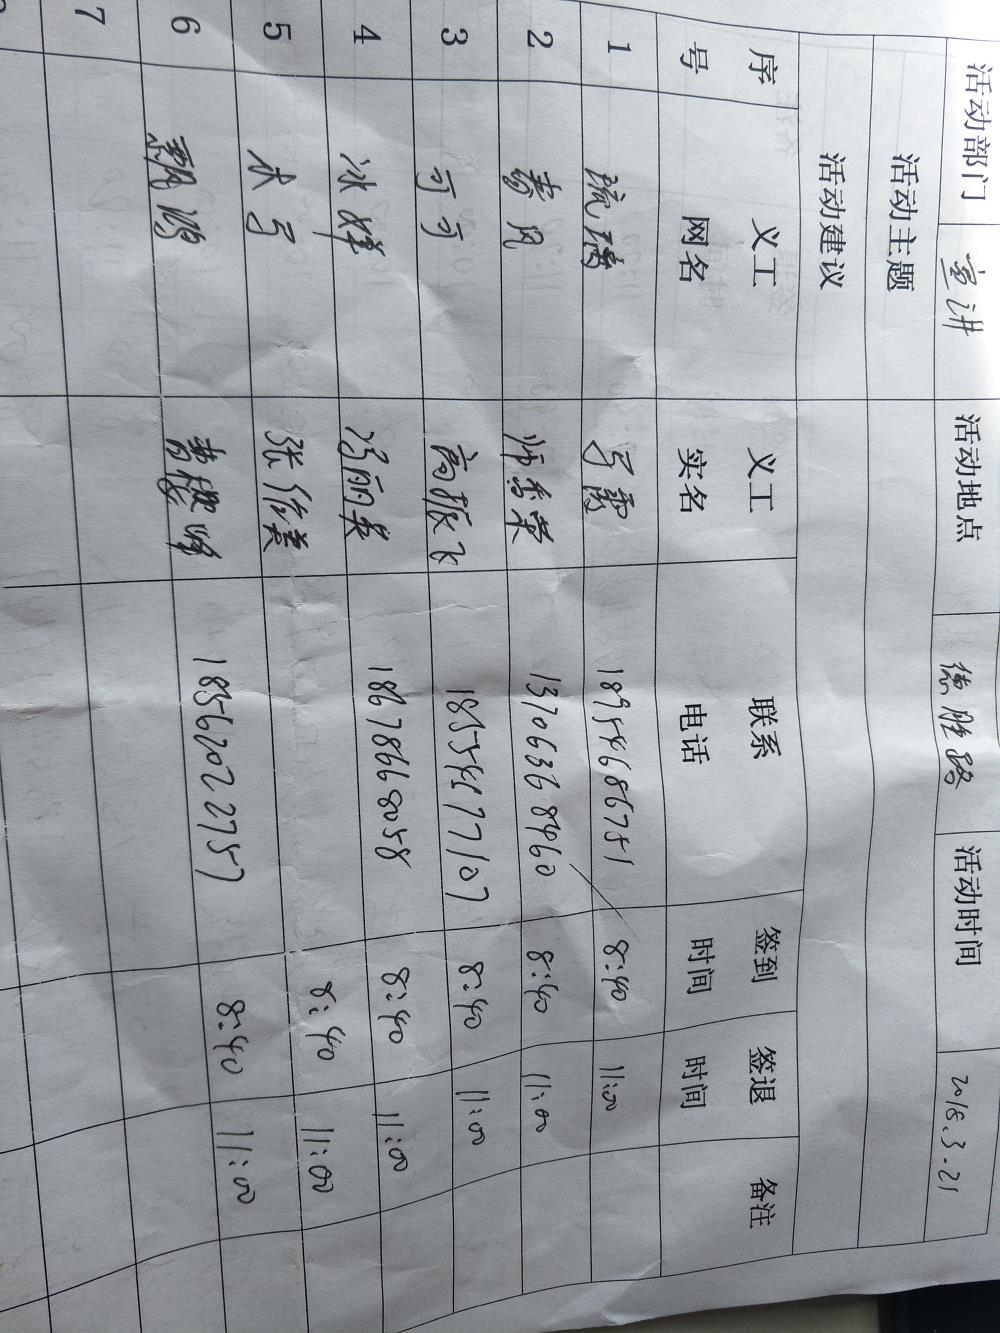 活动部门 宣讲 活动地点 德胜路 活动时间 2018.3.21
活动主题
活动建议
序号 义工网名 义工实名 联系电话 签到时间 签退时间 备注
1 琉璃 弓霞 18954686751 8:40 11:00
2 春风 师秀荣 13706368460 8:40 11:00
3 可可 高振飞 18554577107 8:40 11:00
4 冰峰 冯丽英 18678668058 8:40 11:00
5 张 8:40 11:00
6 飘 曹 18562022757 8:40 11:00
7